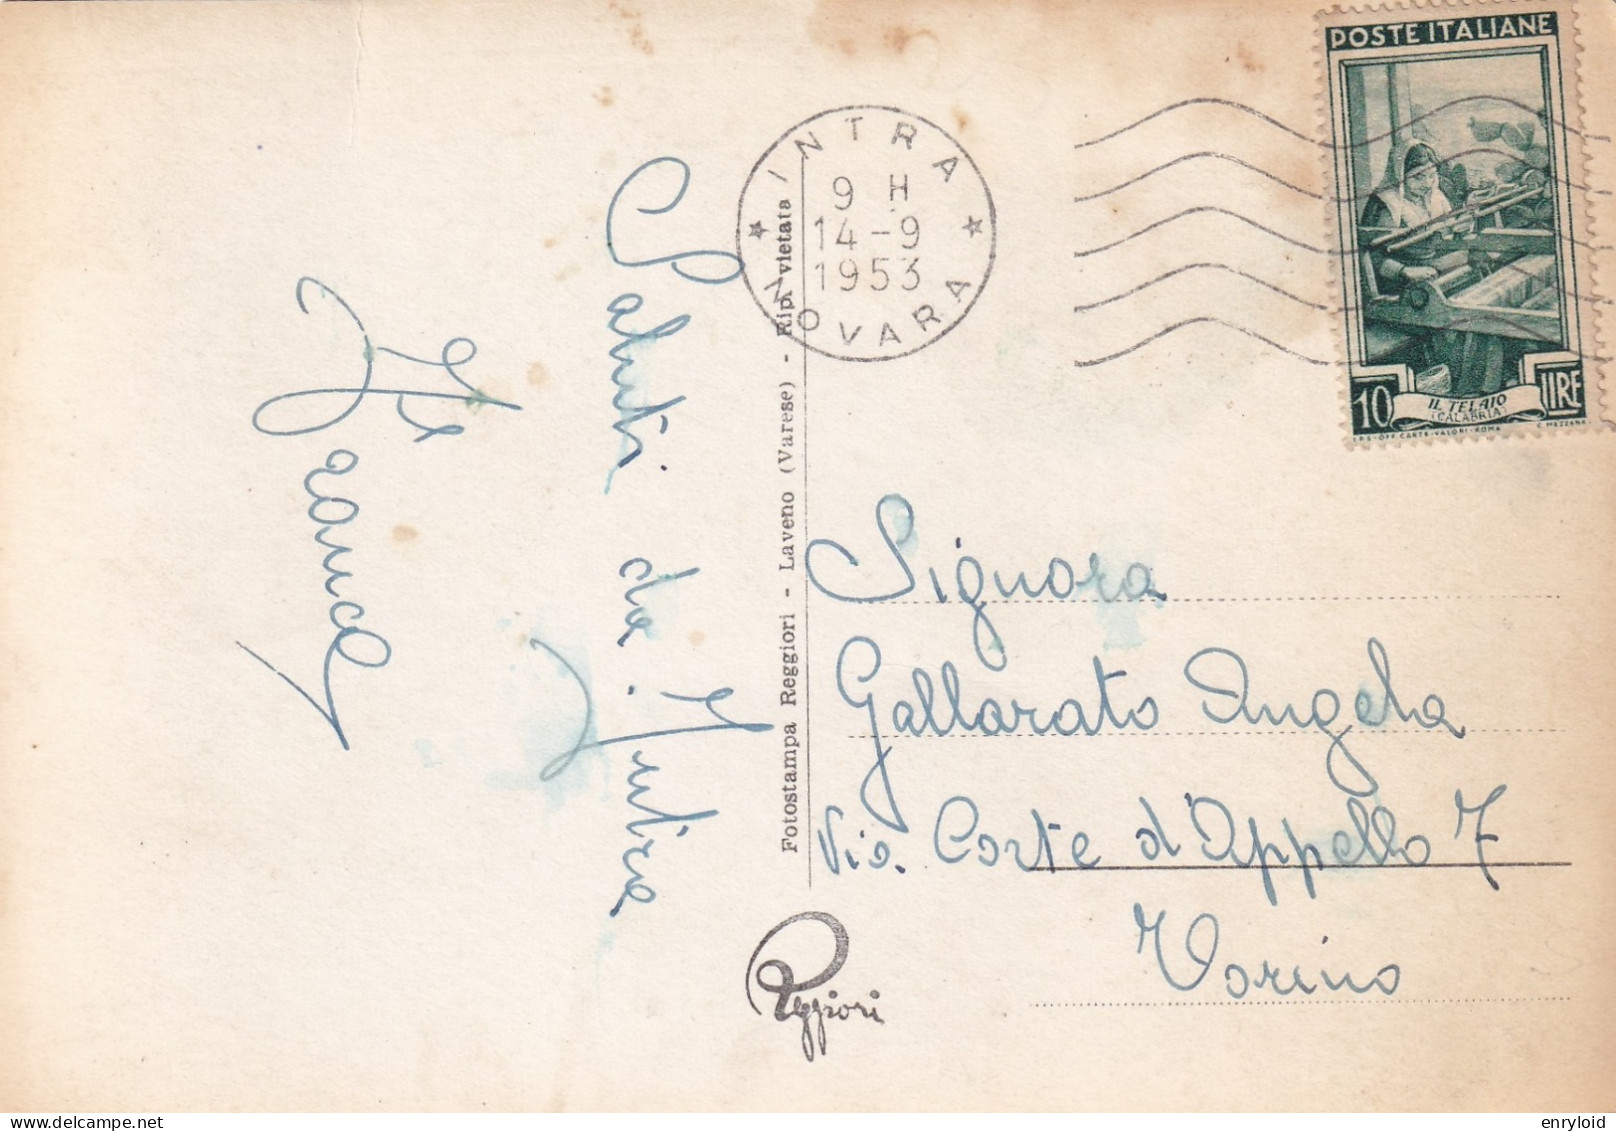 POSTE ITALIANE
10 LIRE
IL TELAIO
(CALABRIA)
I.P.S-OFF. CARTE-VALORI-ROMA
C. MEZZANA
INTRA
9 H
14-9
1953
NOVARA
Saluti da
Intra
Franca
Fotostampa Reggiori - Laveno (Varese) - Rip. vietata
Signora
Gallarato Angela
Via. Corte d'Appello 7
Torino
Reggiori
delcampe.net
enryloid